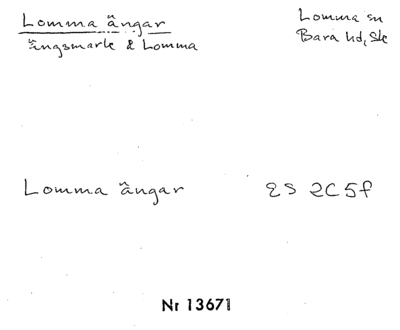 Lomma ängar
Lomma sn
ängsmark & Lomma
Bara hd, Sk
Lomma ängar
ES 2C5f
Nr 13671